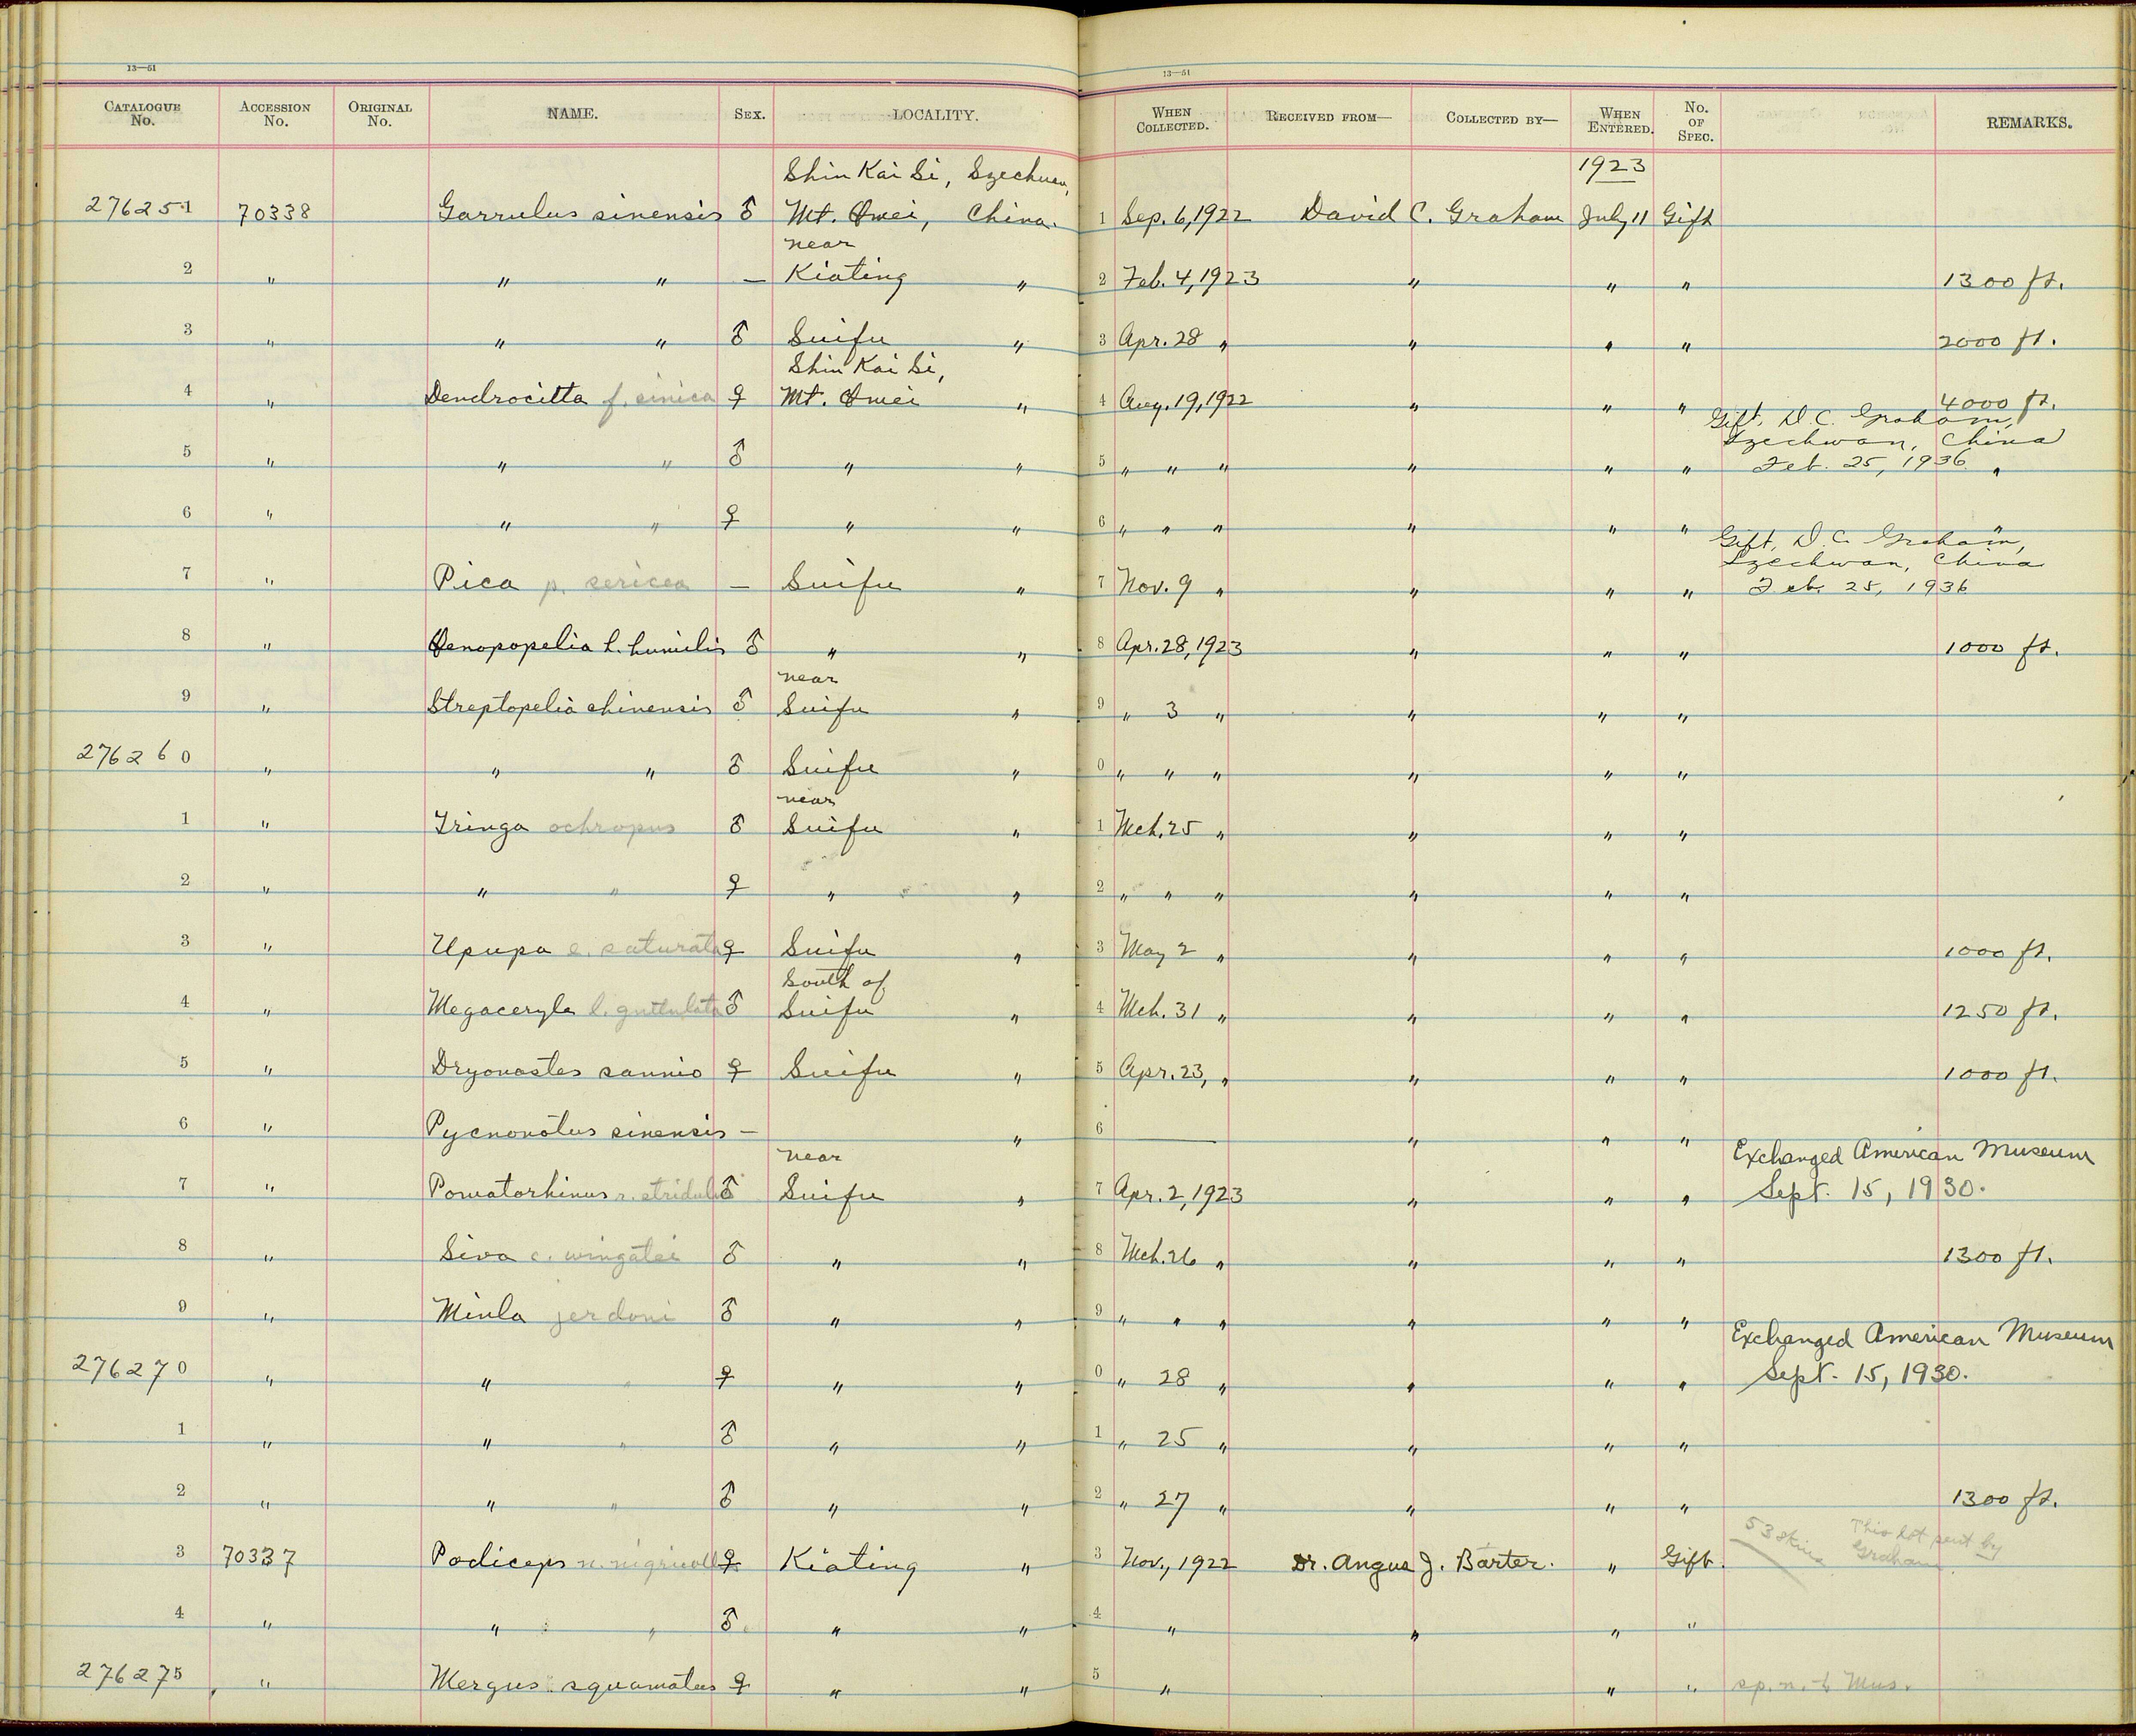 13—51
13—51
CATALOGUE No. ACCESSION No. ORIGINAL No. NAME. SEX. LOCALITY. WHEN COLLECTED. RECEIVED FROM— COLLECTED BY— WHEN ENTERED. No. OF SPEC. REMARKS.
Shin Kai Si, Szechuen, 1923
276251 70338 Garrulus sinensis ♂ Mt. Omei, China. 1 Sep. 6, 1922 David C. Graham July 11 Gift
near
2 " " " — Kiating " 2 Feb. 4, 1923 " " " 1300 ft.
3 " " " ♂ Suifu " 3 Apr. 28 " " " " 2000 ft.
Shin Kai Si,
4 " Dendrocitta f. sinica ♀ Mt. Omei " 4 Aug. 19, 1922 " " " 4000 ft.
Gift, D. C. Graham,
Szechwan, China
5 " " " ♂ " " 5 " " " " " " Feb. 25, 1936 "
6 " " " ♀ " " 6 " " " " " " "
Gift, D. C. Graham,
Szechwan, China
7 " Pica p. sericea — Suifu " 7 Nov. 9 " " " " Feb. 25, 1936
8 " Oenopopelia h. humilis ♂ " " 8 Apr. 28, 1923 " " " 1000 ft.
near
9 " Streptopelia chinensis ♂ Suifu " 9 " 3 " " " "
276260 " " " ♂ Suifu " 0 " " " " " "
near
1 " Tringa ochropus ♂ Suifu " 1 Mch. 25 " " " "
2 " " " ♀ " " 2 " " " " " "
3 " Upupa e. saturata ♀ Suifu " 3 May 2 " " " " 1000 ft.
South of
4 " Megaceryle l. guttulata ♂ Suifu " 4 Mch. 31 " " " " 1250 ft.
5 " Dryonastes sannio ♀ Suifu " 5 Apr. 23, " " " " 1000 ft.
6 " Pycnonotus sinensis — " 6 — " " "
near Exchanged American Museum
7 " Pomatorhinus r. stridulus ♂ Suifu " 7 Apr. 2, 1923 " " " Sept. 15, 1930.
8 " Siva c. wingatei ♂ " " 8 Mch. 26 " " " " 1300 ft.
9 " Minla jerdoni ♂ " " 9 " " " " " "
Exchanged American Museum
276270 " " " ♀ " " 0 " 28 " " " " Sept. 15, 1930.
1 " " " ♂ " " 1 " 25 " " " "
2 " " " ♂ " " 2 " 27 " " " " 1300 ft.
53 skins This lot sent by
Graham
3 70337 Podiceps n. nigricollis ♀ Kiating " 3 Nov., 1922 Dr. Angus J. Barter. " Gift.
4 " " " ♂ " " 4 " " " "
276275 " Mergus squamatus ♀ " " 5 " " " Mus.